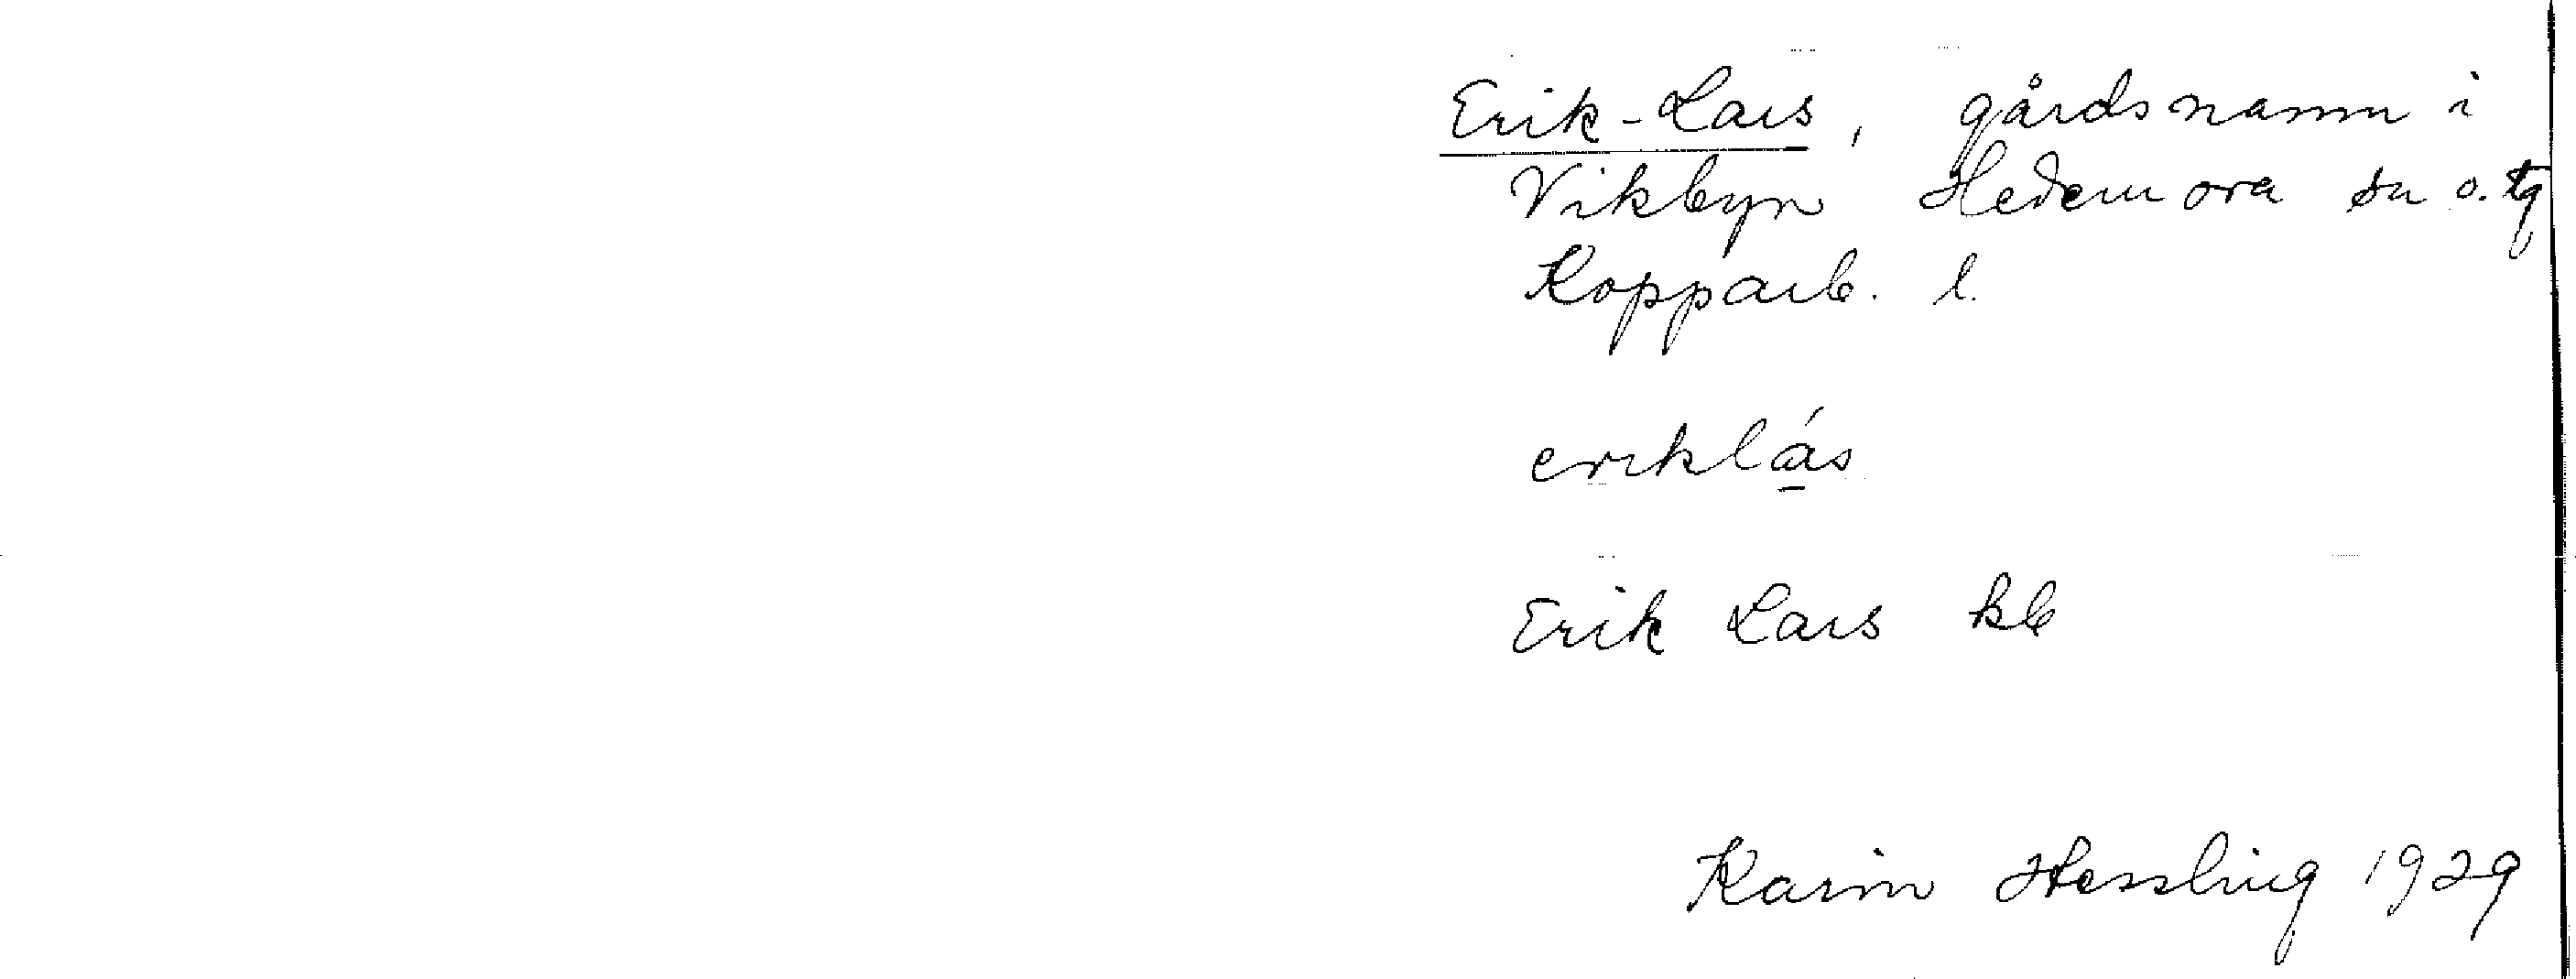 Erik-Lars, gårdsnamn i
Vikbyn Hedemora sn o. tg
Kopparb. l.
eriklás
Erik Lars kb
Karin Hessling 1929